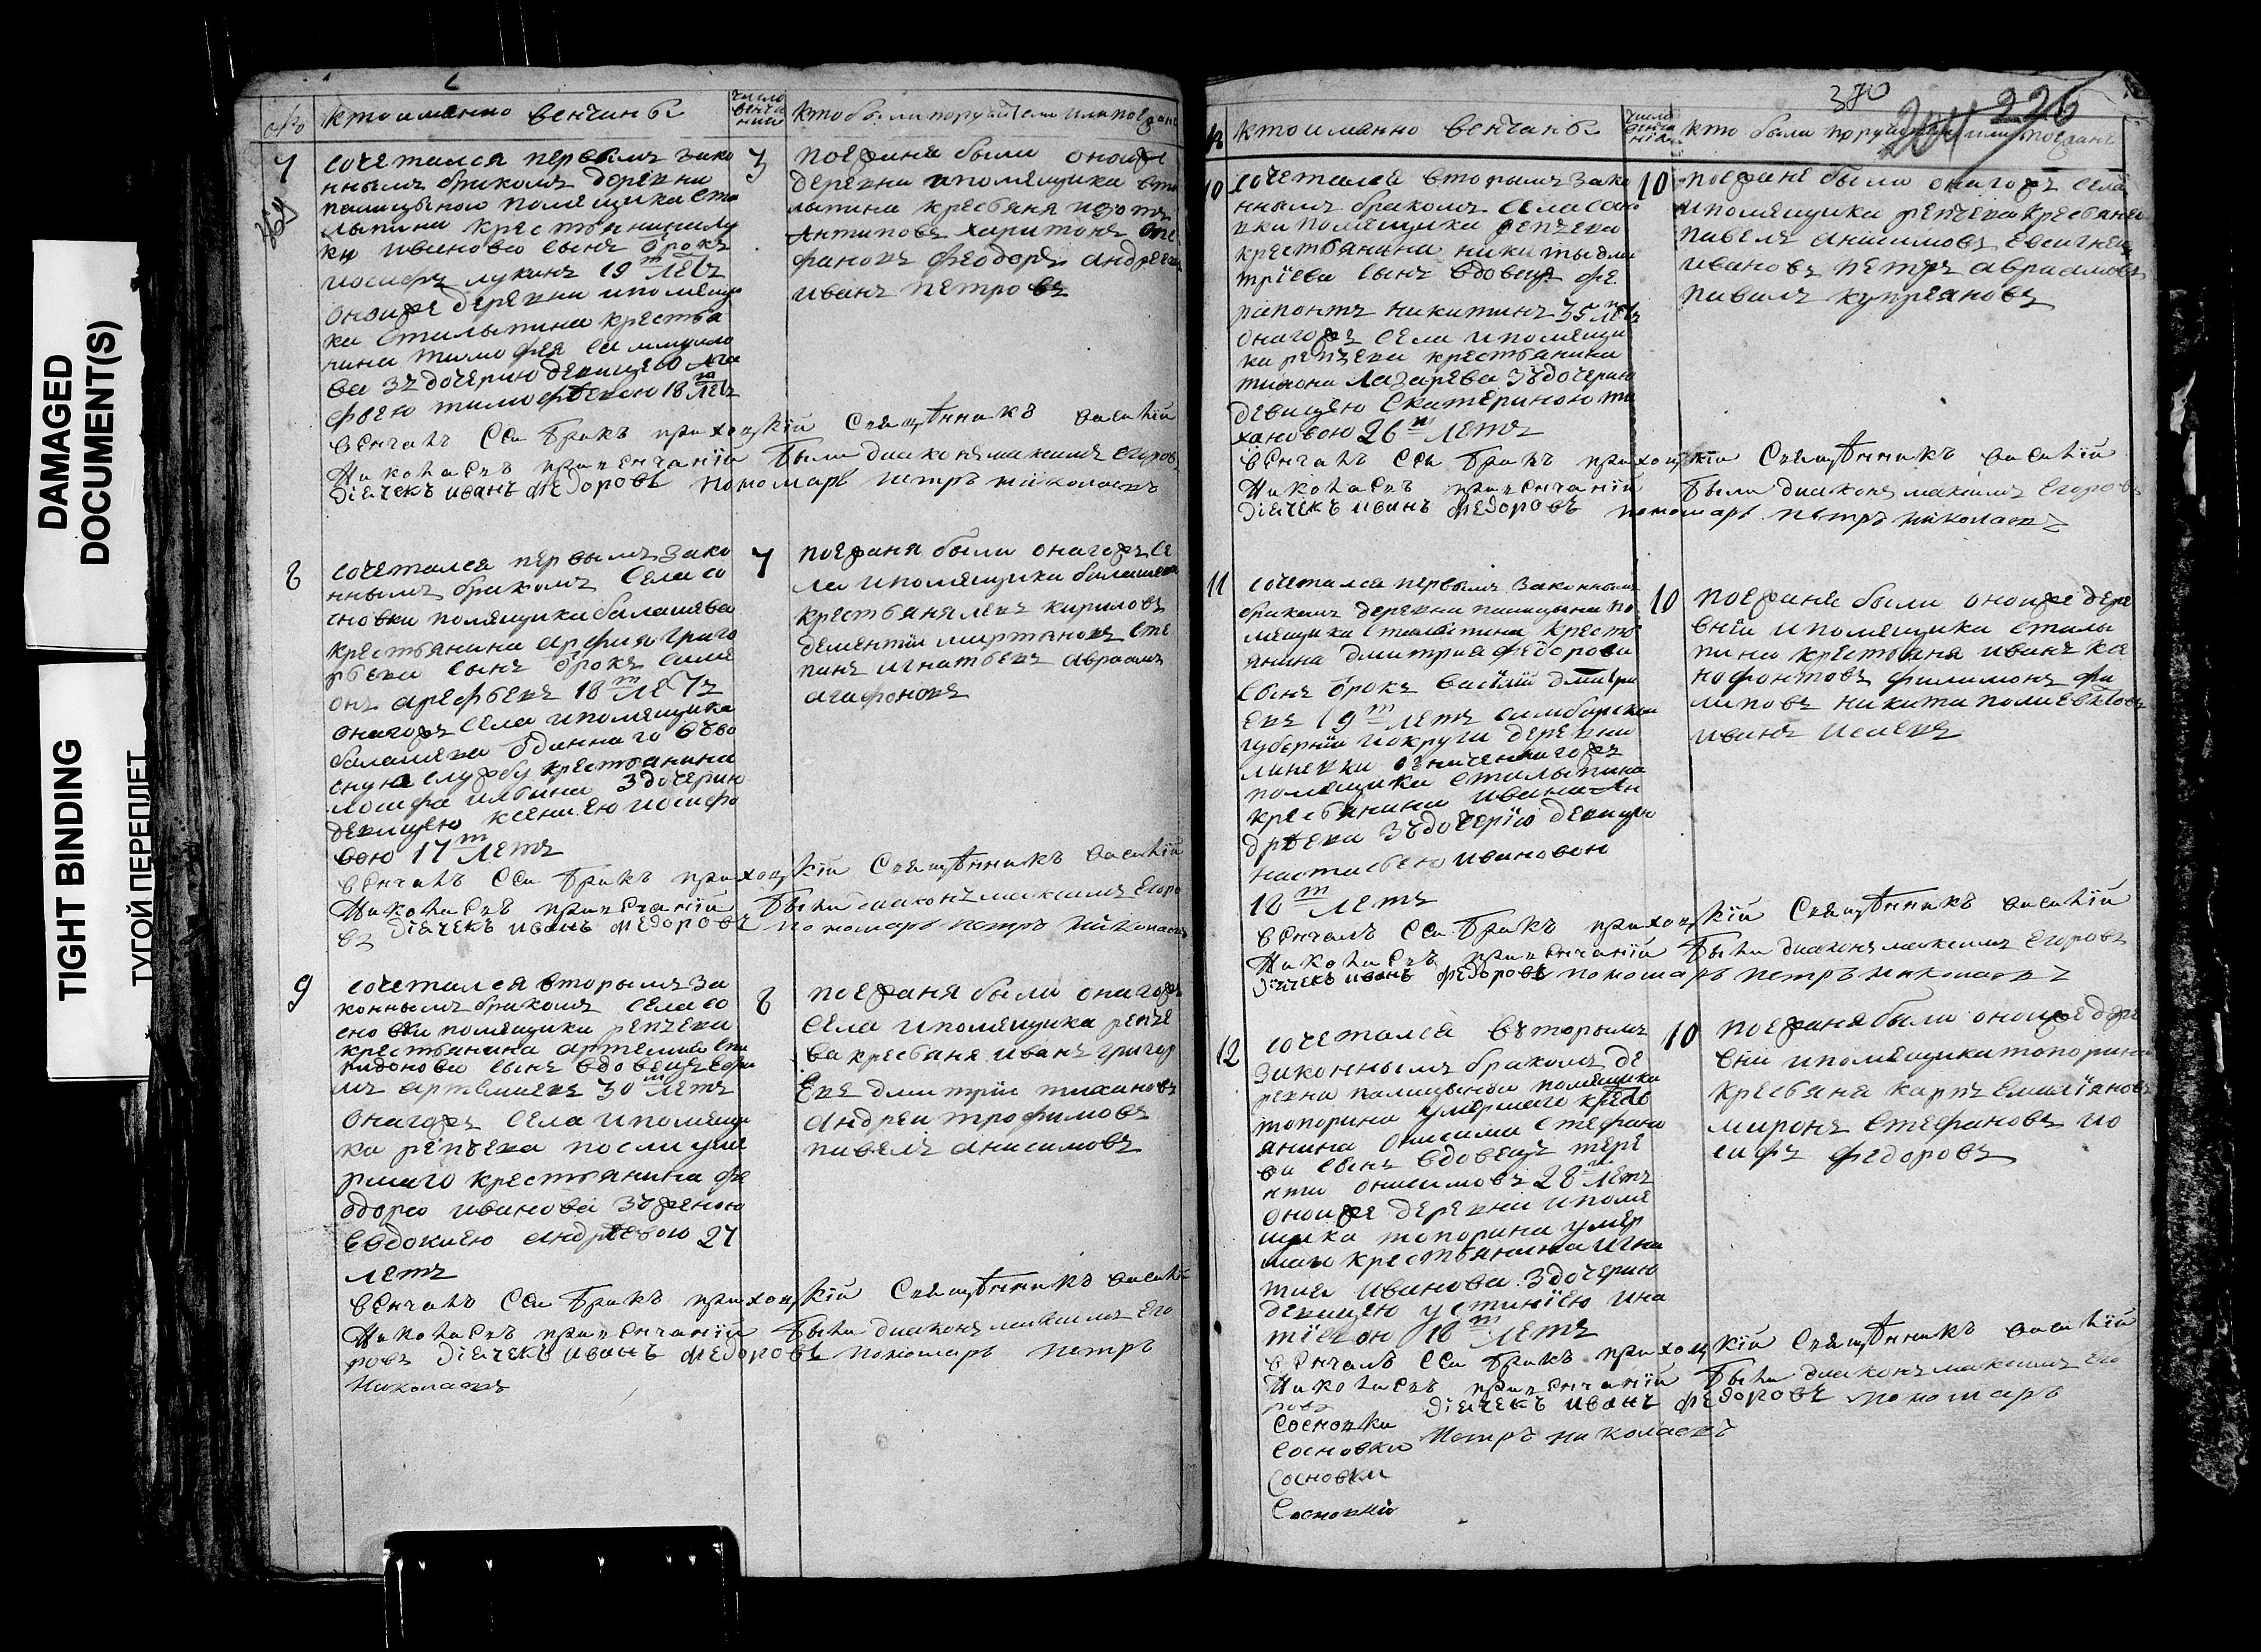 DAMAGED
DOCUMENT(S)
TIGHT BINDING
ТУГОЙ ПЕРЕПЛЕТ
кто именно венчаны
число венчания
кто были поручители или поезжане
7
сочетался первымъ зако
ннымъ бракомъ деревни
палицыной помещика сто
лыпина крестьянина лу
ки иванова сынъ отрокъ
иосифъ лукинъ 19 т летъ
оной же деревни и помещи
ка столыпина крестья
нина тимофея самуило
ва зъ дочерию девицею ма
фьею тимофѣевою 18 т летъ
3
поезжаня были оной же
деревни и помещика сто
лыпина кресьяня изотъ
антиповъ харитонъ сте
фановъ феодоръ андреевъ
иванъ петровъ
венчалъ сей бракъ приходский священникъ василий
николаевъ при венчании были диаконъ максимъ егоровъ
діячекъ иванъ федоровъ пономарь петръ николаевъ
8
сочетался первымъ зако
ннымъ бракомъ села со
сновки помещика балашева
крестьянина арефия григо
рьева сынъ отрокъ симе
онъ арефьевъ 18 т летъ
онагожъ села и помещика
балашева отданнаго въ во
енную службу крестьянина
иосифа ильина з дочерию
девицею ксениею иосифо
вою 17 т летъ
7
поезжаня были онагожъ се
ла и помещика балашева
крестьяня левъ кириловъ
дементий мартыновъ сте
панъ игнатьевъ авраамъ
агафоновъ
венчалъ сей бракъ приходский священникъ василий
николаевъ при венчании были диаконъ максимъ егоро
въ діячекъ иванъ федоровъ пономарь петръ николаевъ
9
сочетался вторымъ за
коннымъ бракомъ села со
сновки помещика репьева
крестьянина артемия спи
ридонова сынъ вдовецъ ефи
мъ артемиевъ 30 т летъ
онагожъ села и помещи
ка репьева после уме
ршаго крестьянина фе
одора иванова зъ женою
евдокиею андреевою 27
летъ
8
поезжаня были онагожъ
села и помещика репье
ва кресьяня иванъ григор
евъ дмитрий тихановъ
андреи трофимовъ
павелъ анисимовъ
венчалъ сей бракъ приходский священникъ василий
николаевъ при венчании были диаконъ максимъ его
ровъ діячекъ иванъ федоровъ пономарь петръ
николаевъ
380
204 226
кто именно венчаны
число венчания
кто были поручители или поезжане
10
сочетался вторымъ зако
ннымъ бракомъ села сосно
вки помещика репьева
крестьянина никиты дми
трїева сынъ вдовецъ фе
рапонтъ никитинъ 35 т летъ
онагожъ села и помещи
ка репьева крестьянина
тихона лазарева зъ дочерию
девицею екатериною ти
хановою 26 т летъ
10
поезжаня были онагожъ села
и помещика репьева кресьяня
павелъ анисимовъ евсигней
ивановъ петръ авраамовъ
павилъ куприяновъ
венчалъ сей бракъ приходский священникъ василий
николаевъ при венчании были диаконъ максимъ егоровъ
діячекъ иванъ федоровъ пономарь петръ николаевъ
11
сочетался первымъ законнымъ
бракомъ деревни палицына по
мещика столыпина кресть
янина дмитрия федорова
сынъ отрокъ василий дмитри
евъ 19 т летъ симбирской
губернии и округи деревни
линевки означеннагожъ
помещика столыпина
кресьянина ивана ан
дреева зъ дочерїю девицею
настасьею ивановою
18 т летъ
10
поезжаня были оной же дере
вніи и помещика столы
пина крестьяня иванъ ка
нофонтовъ филимонъ фи
липовъ никита полиевктовъ
иванъ исаевъ
венчалъ сей бракъ приходский священникъ василий
николаевъ при венчании были диаконъ максимъ егоровъ
діячекъ иванъ федоровъ пономарь петръ николаевъ
12
сочетался въторымъ
законнымъ бракомъ де
ревни палицыной помещика
топорина умершаго кресть
янина онисима стефано
ва сынъ вдовецъ тере
нти онисимовъ 28 т летъ
оной же деревни и поме
щика топорина умер
шаго крестьянина игна
тия иванова з дочерию
девицею устиниею игна
тиевою 18 т летъ
10
поезжаня были оной же дере
вни и помещика топорина
кресьяня карпъ емилїановъ
миронъ стефановъ ио
сифъ федоровъ
венчалъ сей бракъ приходский священникъ василий
николаевъ при венчании были диаконъ максимъ его
ровъ діячекъ иванъ федоровъ пономарь
Сосновки
Сосновки петръ николаевъ
Сосновки
Сосновки